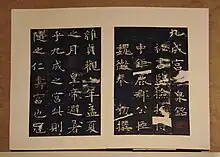 九成宮醴泉銘
監檢校侍
中鉅鹿郡公臣
魏徵奉敕撰
維貞觀六年孟夏
之月皇帝避暑
乎九成之宮此則
隨之仁壽宮也冠